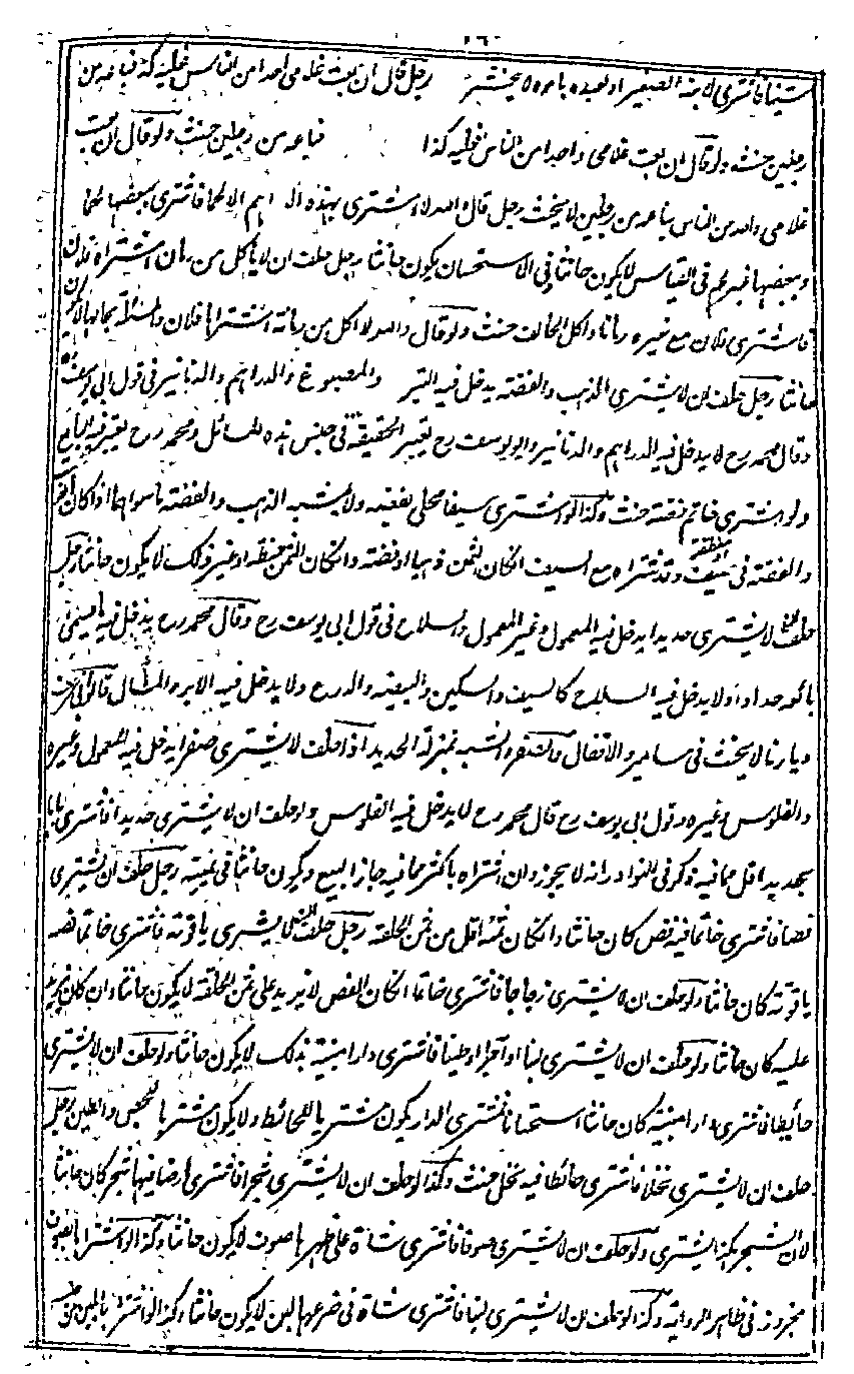 ١٦٠
شيئا فاشترى لابنه الصغير او لعبده بامره لا يحنث رجل قال ان بعت غلامى احدا من الناس فعليه كذا فباعه من
رجلين حنث ولو قال ان بعت غلامى واحدا من الناس فعليه كذا فباعه من رجلين حنث ولو قال ان بعت
غلامى واحد من الناس باعه من رجلين لا يحنث رجل قال والله لا اشترى بهذه الدراهم الا لحما فاشترى ببعضها لحما
وببعضها غير لحم فى القياس لا يكون حانثا وفى الاستحسان يكون حانثا رجل حلف ان لا يأكل من رمان اشتراه فلان
فاشترى فلان مع غيره رمانا واكل الحالف حنث ولو قال والله لا اكل من رمانة اشتراها فلان والمسئلة بحالها لا يكون
حانثا رجل حلف ان لا يشترى الذهب والفضة يدخل فيه التبر والمصبوغ والدراهم والدنانير فى قول ابى يوسف رح
وقال محمد رح لا يدخل فيه الدراهم والدنانير وابو يوسف رح يعتبر الحقيقة فى جنس هذه المسائل ومحمد رح يعتبر فيه البايع
ولو اشترى خاتم فضة حنث وكذا لو اشترى سيفا محلى بفضة ولا يشبه الذهب والفضة ما سواهما اذا كان الذهب
والفضة فى سيف او منطقة وقد اشتراه مع السيف ان كان الثمن ذهبا او فضة وان كان الثمن حنطة او غير ذلك لا يكون حانثا رجل
حلف لا يشترى حديدا يدخل فيه المعمول وغير المعمول والسلاح فى قول ابى يوسف رح وقال محمد رح يدخل فيه ما يسمى
بائعه حدادا ولا يدخل فيه السلاح كالسيف والسكين والبيضة والدرع ولا يدخل فيه الابر والمسال قالوا فى عرف
ديارنا لا يحنث فى مسامير والاقفال والصفر والشبه بمنزلة الحديد اذا حلف لا يشترى صفرا يدخل فيه المعمول وغيره
والفلوس وغيره وقول ابى يوسف رح قال محمد رح لا يدخل فيه الفلوس ولو حلف ان لا يشترى حديدا فاشترى بابا
بحديد اقل مما فيه ذكر فى النوادر انه لا يجوز وان اشتراه باكثر مما فيه جاز البيع ويكون حانثا فى يمينه رجل حلف ان لا يشترى
فصا فاشترى خاتما فيه فص كان حانثا وان كان ثمنه اقل من ثمن الحلقة رجل حلف ان لا يشترى ياقوتة فاشترى خاتما فصه
ياقوتة كان حانثا ولو حلف ان لا يشترى زجاجا فاشترى خاتما ان كان الفص لا يزيد على ثمن الحلقة لا يكون حانثا وان كان يزيد
عليه كان حانثا ولو حلف ان لا يشترى لبنا او آجرا او طينا فاشترى دارا مبنية بذلك لا يكون حانثا ولو حلف ان لا يشترى
حائطا فاشترى دارا مبنية كان حانثا استحسانا فمشترى الدار يكون مشتريا للحائط ولا يكون مشتريا للجص والطين رجل
حلف ان لا يشترى نخلا فاشترى حائطا فيه نخل حنث وكذا لو حلف ان لا يشترى شجرا فاشترى ارضا فيها شجر كان حانثا
لان الشجر هكذا يشترى ولو حلف ان لا يشترى صوفا فاشترى شاة على ظهرها صوف لا يكون حانثا وكذا لو اشتراها بصوف
مجزوز فى ظاهر الرواية وكذا لو حلف ان لا يشترى لبنا فاشترى شاة فى ضرعها لبن لا يكون حانثا وكذا لو اشتراها بلبن من